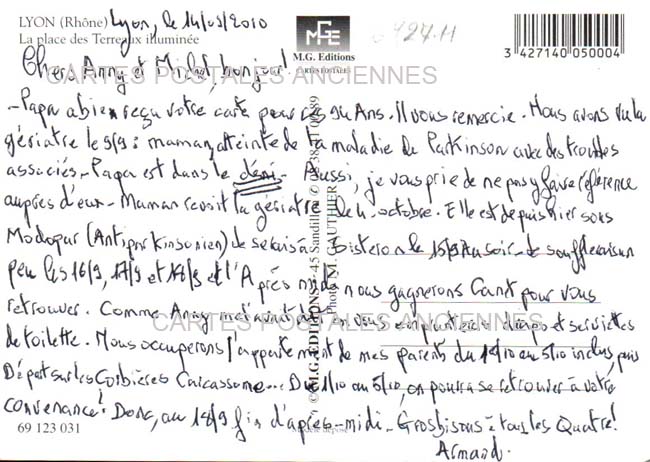 LYON (Rhône) Lyon, le 14/09/2010
La place des Terreaux illuminée
MGE
M.G. Editions
CARTES POSTALES
3 427140 050004
Chers Anny et Michel, bonjour!
CARTES POSTALES ANCIENNES
- Papa a bien reçu votre carte pour ses 90 Ans. Il vous remercie. Nous avons vu la
gériatre le 9/9 : maman, atteinte de la maladie de Parkinson avec des troubles
associés - Papa est dans le déni - Aussi, je vous prie de ne pas y faire référence
auprès d'eux - Maman revoit la gériatre le 4 octobre. Elle est depuis hier sous
Modopar (Antiparkinsonien) Je serais à Sisteron le 15/9 Au soir - Je soufflerais un
peu les 16/9, 17/9 et 18/9 et l'Après midi nous gagnerons Carit pour vous
retrouver. Comme Anny draps et serviettes
CARTES POSTALES ANCIENNES
de toilette. Nous occuperons l'appartement de mes parents du au 5/10 inclus, puis
Départ sur les Corbières Carcassonne... Du 1/10 au 5/10, on pourra se retrouver à votre
convenance! Donc, au 18/9 fin d'après-midi - Gros bisous à tous les Quatre!
69 123 031
Armand.
© M.G. EDITIONS - 45 Sandillon
Photo M. GAUTHIER